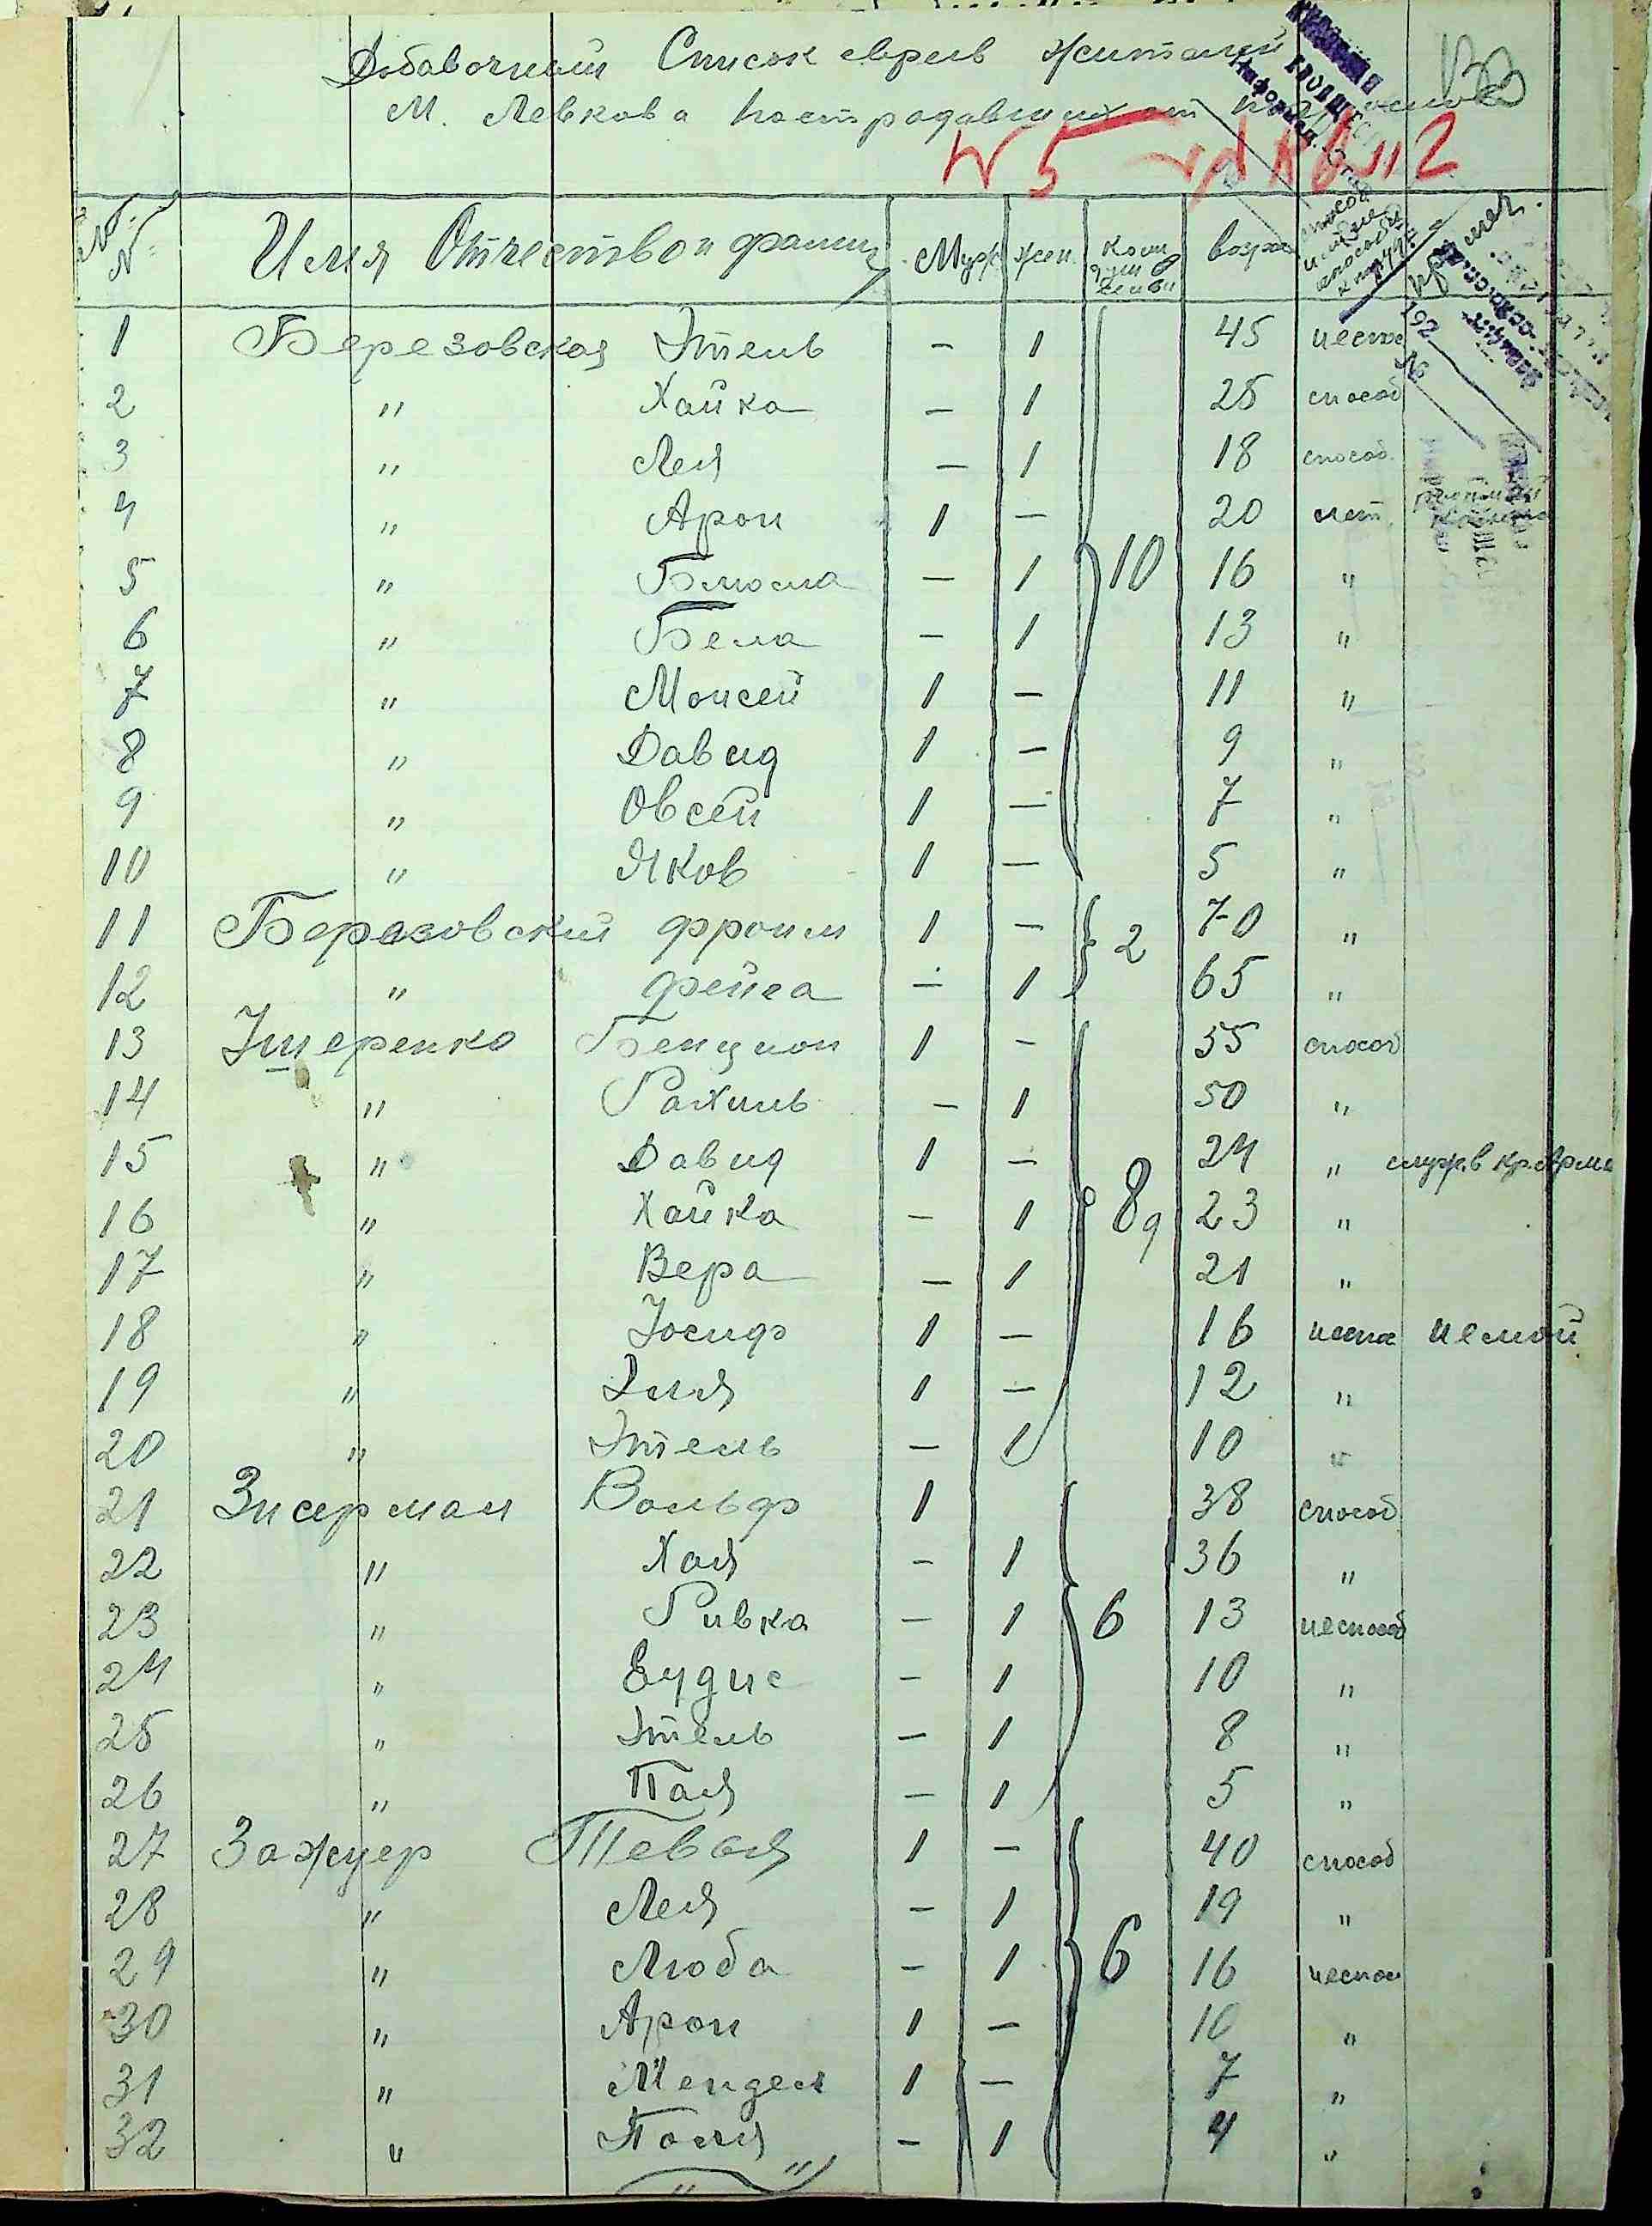 Добавочный Список евреев жителей
М. Левкова Пострадавших от
№ 5
№ № Имя Отчество и фамил Муж жен. колич в семьи возра способ или не способ к труду примеч.
1 Березовская Этель — 1 45 неспос
2 " Хайка — 1 25 способ
3 " Лея — 1 18 способ.
4 " Арон 1 — 20 нет.
5 " Блюма — 1 10 16 "
6 " Бела — 1 13 "
7 " Моисей 1 — 11 "
8 " Давид 1 — 9 "
9 " Овсей 1 — 7 "
10 " Яков 1 — 5 "
11 Березовский Фроим 1 — 2 70 "
12 " Фейга — 1 65 "
13 Ушеренко Бенцион 1 — 55 способ
14 " Рахиль — 1 50 "
15 " Давид 1 — 24 " служ. в кр. Арми
16 " Хайка — 1 8 23 "
17 " Вера — 1 21 "
18 " Иосиф 1 — 16 неспос немой
19 " Эля 1 — 12 "
20 " Этель — 1 10 "
21 Зисерман Вольф 1 38 способ
22 " Хая — 1 36 "
23 " Ривка — 1 6 13 неспособ
24 " Еудис — 1 10 "
25 " Этель — 1 8 "
26 " Поля — 1 5 "
27 Зажцер Тевель 1 — 40 способ
28 " Лея — 1 19 "
29 " Люба — 1 6 16 неспос
30 " Арон 1 — 10 "
31 " Мендел 1 — 7 "
32 " Поля — 1 4 "